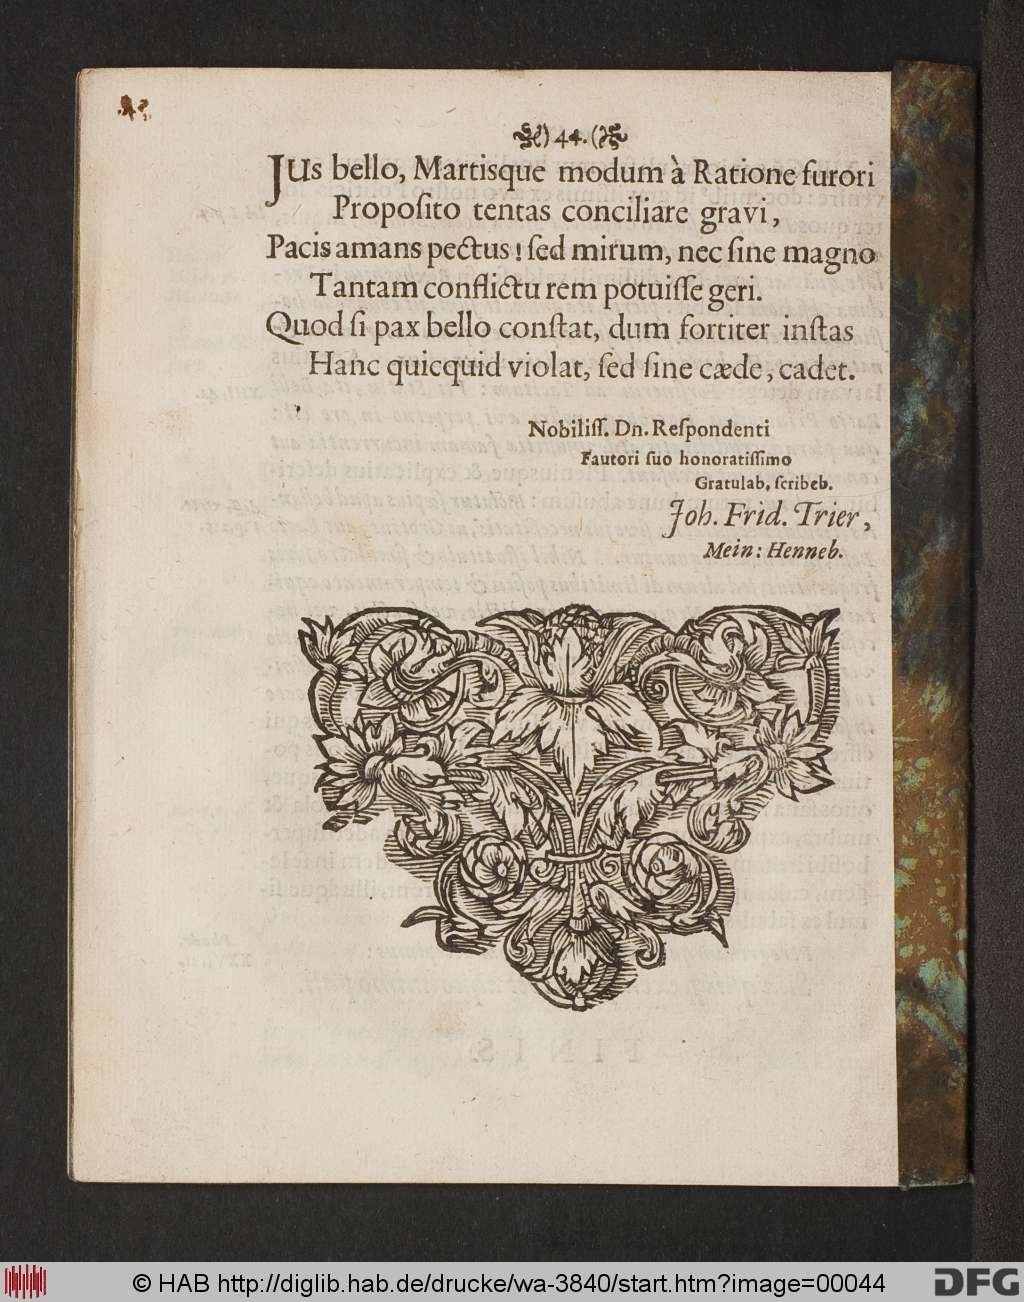 ) 44. (
JUs bello, Martisque modum à Ratione furori
Propoſito tentas conciliare gravi,
Pacis amans pectus! ſed mirum, nec ſine magno
Tantam conflictu rem potuiſſe geri.
Quod ſi pax bello conſtat, dum fortiter inſtas
Hanc quicquid violat, ſed ſine cæde, cadet.
Nobiliſſ. Dn. Reſpondenti
Fautori ſuo honoratiſſimo
Gratulab. ſcribeb.
Joh. Frid. Trier,
Mein: Henneb.
FINIS.
© HAB http://diglib.hab.de/drucke/wa-3840/start.htm?image=00044
DFG